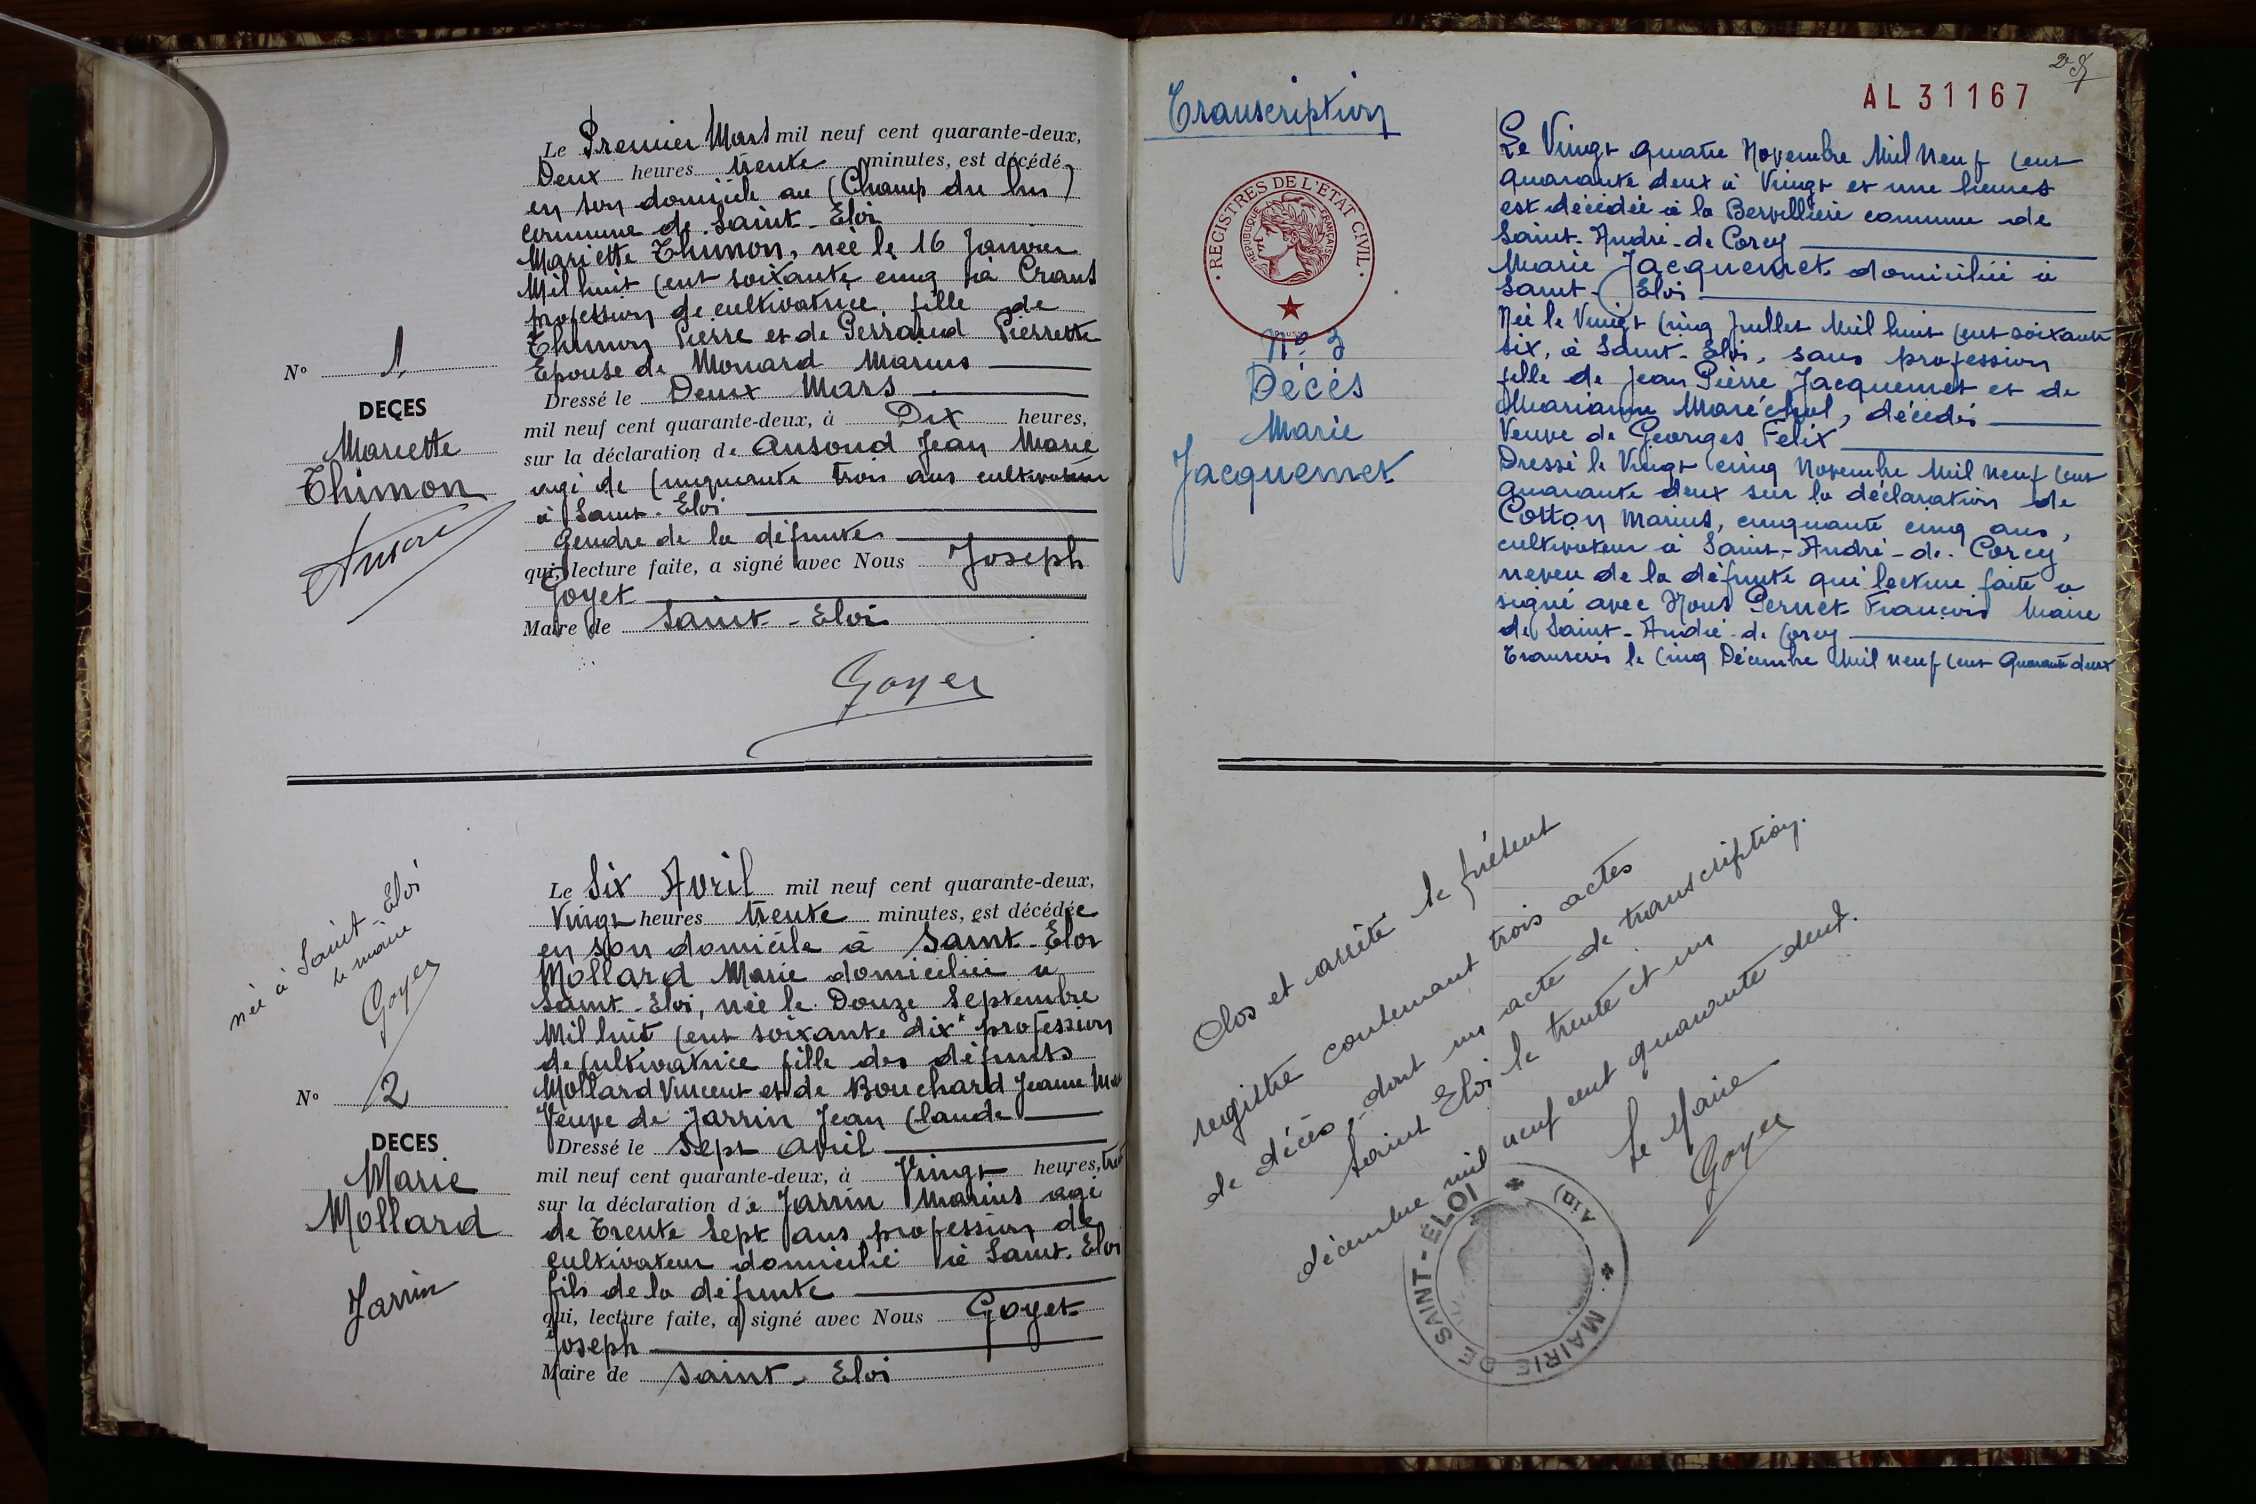 Le Premier Mars mil neuf cent quarante-deux,
Deux heures trente minutes, est décédée
en son domicile au (Champ du lin)
commune de Saint-Eloi
Mariette Thimon, née le 16 Janvier
Mil huit cent soixante cinq à Crans
profession de cultivatrice fille de
Thimon Pierre et de Perraud Pierrette
Epouse de Monard Marius
Dressé le Deux Mars
mil neuf cent quarante-deux, à Dix heures,
sur la déclaration de Jean Marie
agé de Cinquante trois ans cultivateur
à Saint-Eloi
Gendre de la défunte
qui, lecture faite, a signé avec Nous Joseph
Goyet
Maire de Saint-Eloi
N° 1
DECES
Mariette
Thimon
Goyet
née à Saint-Eloi
le maire
Goyet
N° 2
DECES
Marie
Mollard
Jarrin
Le Six Avril mil neuf cent quarante-deux,
Vingt heures trente minutes, est décédée
en son domicile à Saint-Eloi
Mollard Marie domiciliée à
Saint-Eloi, née le Douze Septembre
Mil huit cent soixante dix* profession
de Cultivatrice fille des défunts
Mollard Vincent et de Bouchard Jeanne
Veuve de Jarrin Jean Claude
Dressé le Sept Avril
mil neuf cent quarante-deux, à Vingt heures,
sur la déclaration de Jarrin Marius agé
de Trente Sept ans profession de
cultivateur domicilié à Saint-Eloi
fils de la défunte
qui, lecture faite, a signé avec Nous Goyet
Joseph
Maire de Saint-Eloi
AL 31167
Transcription
REGISTRES DE L'ETAT CIVIL
REPUBLIQUE FRANÇAISE
N° 3
Décès
Marie
Jacquemet
Le Vingt quatre Novembre Mil Neuf Cent
quarante deux à Vingt et une heures
est décédée à la commune de
Saint-André-de Corcy
Marie Jacquemet domiciliée à
Saint-Eloi
Née le Vingt Cinq Juillet Mil huit Cent soixante
six, à Saint-Eloi, sans profession
fille de Jean Pierre Jacquemet et de
Marianne Maréchal, décédés
Veuve de Georges Félix
Dressé le Vingt cinq Novembre Mil Neuf Cent
quarante deux sur la déclaration de
Cotton Marius, cinquante cinq ans,
cultivateur à Saint-André-de-Corcy
neveu de la défunte qui lecture faite a
signé avec Nous Pernet François Maire
de Saint-André-de Corcy
Transcris le Cinq Décembre Mil neuf Cent Quarante deux
Clos et arrêté le présent
registre contenant trois actes
de décès, dont un acte de transcription.
Saint Eloi le trente et un
décembre mil neuf cent quarante deux.
Le Maire
Goyet
MAIRIE DE SAINT-ELOI (Ain)